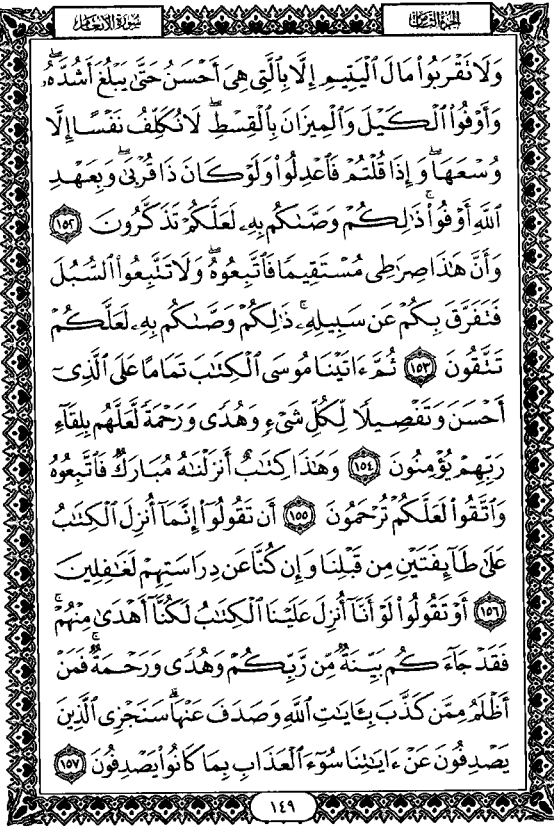 سورة الأنعام
الجزء الثامن
وَلَا تَقْرَبُوا۟ مَالَ ٱلْيَتِيمِ إِلَّا بِٱلَّتِى هِىَ أَحْسَنُ حَتَّىٰ يَبْلُغَ أَشُدَّهُۥۖ
وَأَوْفُوا۟ ٱلْكَيْلَ وَٱلْمِيزَانَ بِٱلْقِسْطِۖ لَا نُكَلِّفُ نَفْسًا إِلَّا
وُسْعَهَاۖ وَإِذَا قُلْتُمْ فَٱعْدِلُوا۟ وَلَوْ كَانَ ذَا قُرْبَىٰۖ وَبِعَهْدِ
ٱللَّهِ أَوْفُوا۟ۚ ذَٰلِكُمْ وَصَّىٰكُم بِهِۦ لَعَلَّكُمْ تَذَكَّرُونَ ١٥٢
وَأَنَّ هَٰذَا صِرَٰطِى مُسْتَقِيمًا فَٱتَّبِعُوهُۖ وَلَا تَتَّبِعُوا۟ ٱلسُّبُلَ
فَتَفَرَّقَ بِكُمْ عَن سَبِيلِهِۦۚ ذَٰلِكُمْ وَصَّىٰكُم بِهِۦ لَعَلَّكُمْ
تَتَّقُونَ ١٥٣ ثُمَّ ءَاتَيْنَا مُوسَى ٱلْكِتَٰبَ تَمَامًا عَلَى ٱلَّذِىٓ
أَحْسَنَ وَتَفْصِيلًا لِّكُلِّ شَىْءٍ وَهُدًى وَرَحْمَةً لَّعَلَّهُم بِلِقَآءِ
رَبِّهِمْ يُؤْمِنُونَ ١٥٤ وَهَٰذَا كِتَٰبٌ أَنزَلْنَٰهُ مُبَارَكٌ فَٱتَّبِعُوهُ
وَٱتَّقُوا۟ لَعَلَّكُمْ تُرْحَمُونَ ١٥٥ أَن تَقُولُوٓا۟ إِنَّمَآ أُنزِلَ ٱلْكِتَٰبُ
عَلَىٰ طَآئِفَتَيْنِ مِن قَبْلِنَا وَإِن كُنَّا عَن دِرَاسَتِهِمْ لَغَٰفِلِينَ
١٥٦ أَوْ تَقُولُوا۟ لَوْ أَنَّآ أُنزِلَ عَلَيْنَا ٱلْكِتَٰبُ لَكُنَّآ أَهْدَىٰ مِنْهُمْۚ
فَقَدْ جَآءَكُم بَيِّنَةٌ مِّن رَّبِّكُمْ وَهُدًى وَرَحْمَةٌۚ فَمَنْ
أَظْلَمُ مِمَّن كَذَّبَ بِـَٔايَٰتِ ٱللَّهِ وَصَدَفَ عَنْهَاۗ سَنَجْزِى ٱلَّذِينَ
يَصْدِفُونَ عَنْ ءَايَٰتِنَا سُوٓءَ ٱلْعَذَابِ بِمَا كَانُوا۟ يَصْدِفُونَ ١٥٧
١٤٩